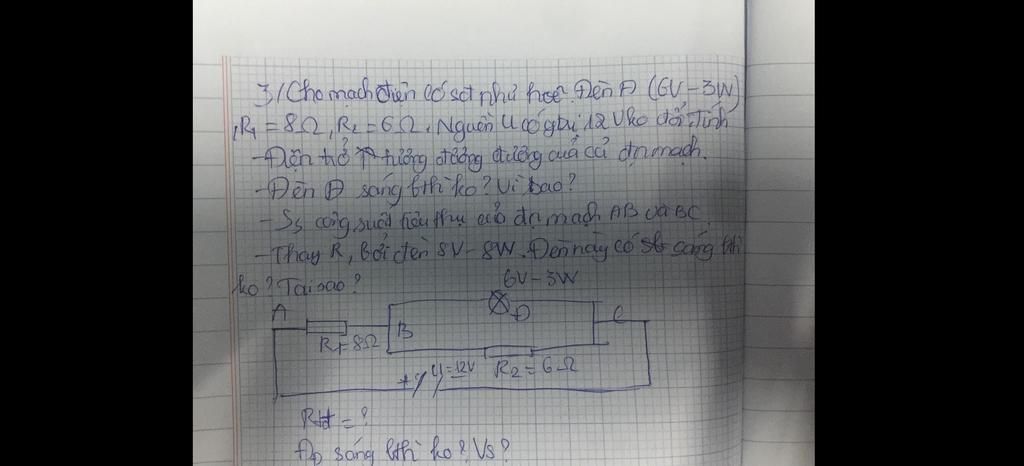 3/ Cho mạch điện có sơ đ như hvẽ. Đèn Đ (6V-3W)
, R1 = 8Ω, R2 = 6Ω. Nguồn U có gtrị 12V ko đổi. Tính
- Điện trở tương đương đương của cả đn mạch.
- Đèn Đ sáng bth ko? Vì sao?
- Ss công suất tiêu thụ của đn mạch AB và BC
- Thay R, bởi đèn 8V-8W. Đèn này có sáng bth
ko? Tại sao?
6V-3W
A
Đ
B
C
R1=8Ω
+ U=12V
R2=6Ω
Rtđ=?
ĐĐ sáng bth ko? Vs?